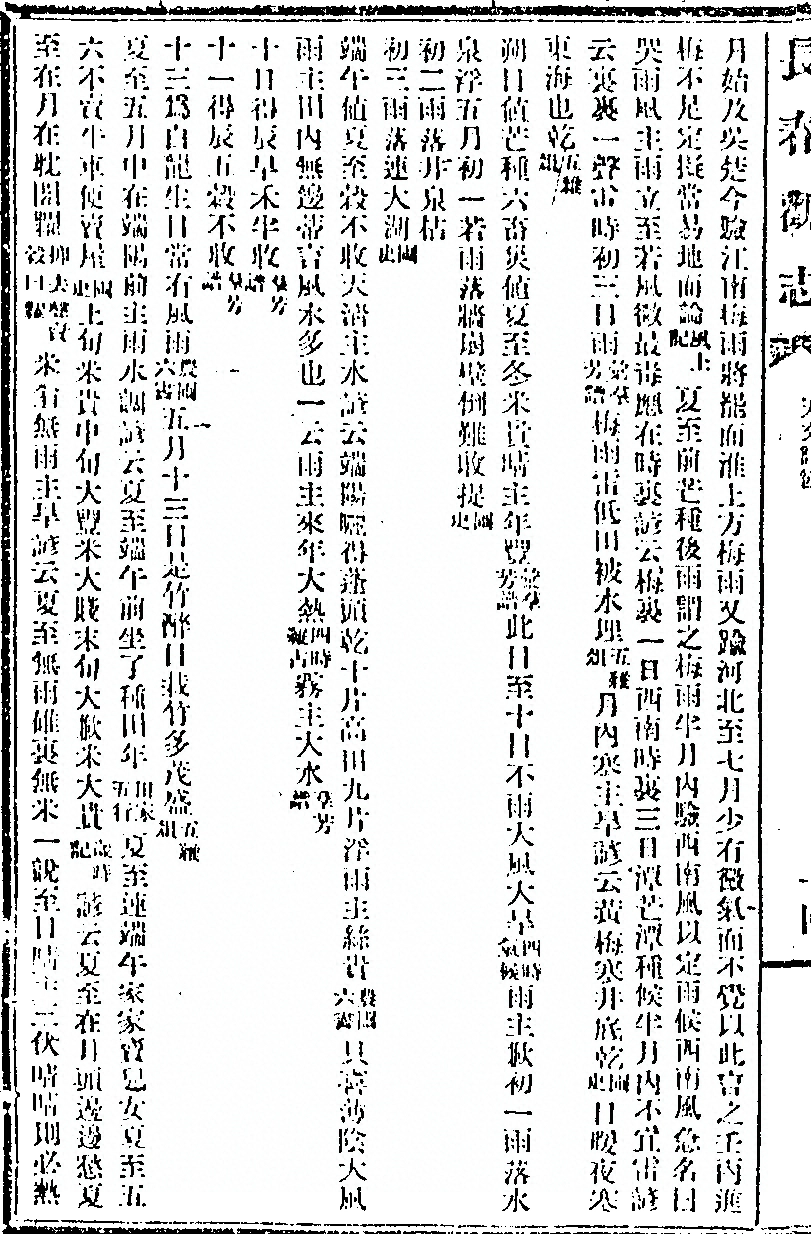 長春觀志
月始及吳楚今驗江南梅雨將罷而淮上方梅雨又踰河北至七月少有微氣而不覺以此言之壬丙進
梅不足定擬當易地而論風土記夏至前芒種後雨謂之梅雨半月內驗西南風以定雨候西南風急名曰
哭雨風主雨立至若風微最毒應在時裏諺云梅裏一日西南時裏三日潭芒潭種候半月內不宜雷諺
云裏裏一聲雷時初三日雨彙羣芳譜梅雨雷低田被水埋五雜俎月內寒主旱諺云黃梅寒井底乾國史日暖夜寒
東海也乾五雜俎
朔日値芒種六畜災値夏至冬米貴晴主年豐彙羣芳譜此日至十日不雨大風大旱四時氣候雨主歉初一雨落水
泉浮五月初一若雨落牆樹壁倒難收提國史
初二雨落井泉枯
初三雨落連大湖國史
端午値夏至穀不收天清主水諺云端陽曬得蓬頭乾十片高田九片浮雨主絲貴農圃六書只喜薄陰大風
雨主田內無邊帶言風水多也一云雨主來年大熱四時纂占霧主大水羣芳譜
十日得辰早禾半收羣芳譜
十一得辰五穀不收羣芳譜
十三爲白龍生日當有風雨農圃六書五月十三日是竹醉日栽竹多茂盛五雜俎
夏至五月中在端陽前主雨水調諺云夏至端午前坐了種田年田家五行夏至連端午家家賣兒女夏至五
六不賣牛車便賣屋國史上旬米貴中旬大豐米大賤末旬大歉米大貴歲時記諺云夏至在月頭邊邊愁夏
至在月在耽閣糶 米 無雨主旱諺云夏至無雨碓裏無米一說至日晴主三伏晴晴則必熱